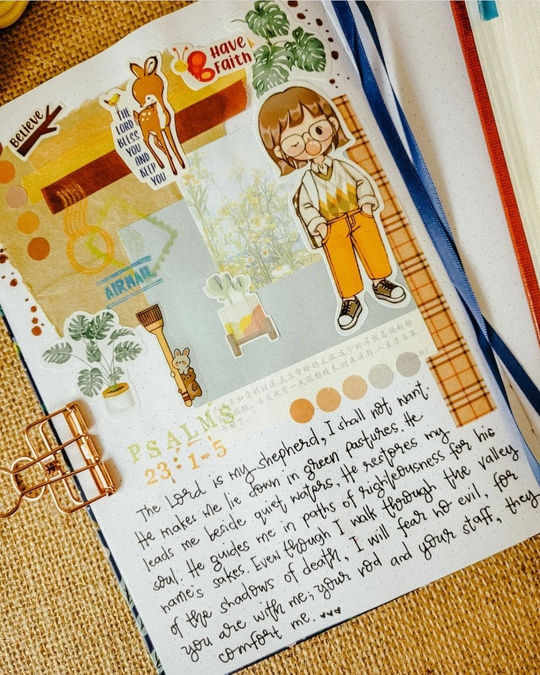 Have
Faith
Believe
THE
LORD
BLESS
YOU
AND
KEEP
YOU
AIRMAIL
PSALMS
23:1-5
The Lord is my shepherd, I shall not want.
He makes me lie down in green pastures. He
leads me beside quiet waters. He restores my
soul. He guides me in paths of righteousness for his
name's sakes. Even though I walk through the valley
of the shadows of death, I will fear no evil, for
you are with me; your rod and your staff, they
comfort me.